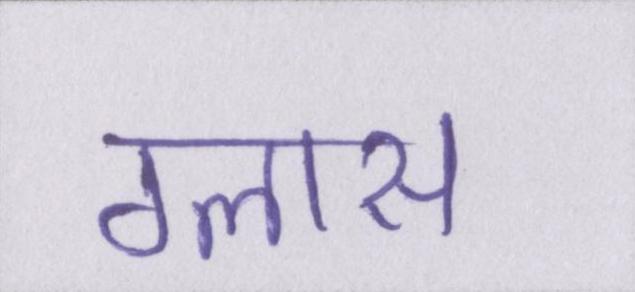 ग्लास